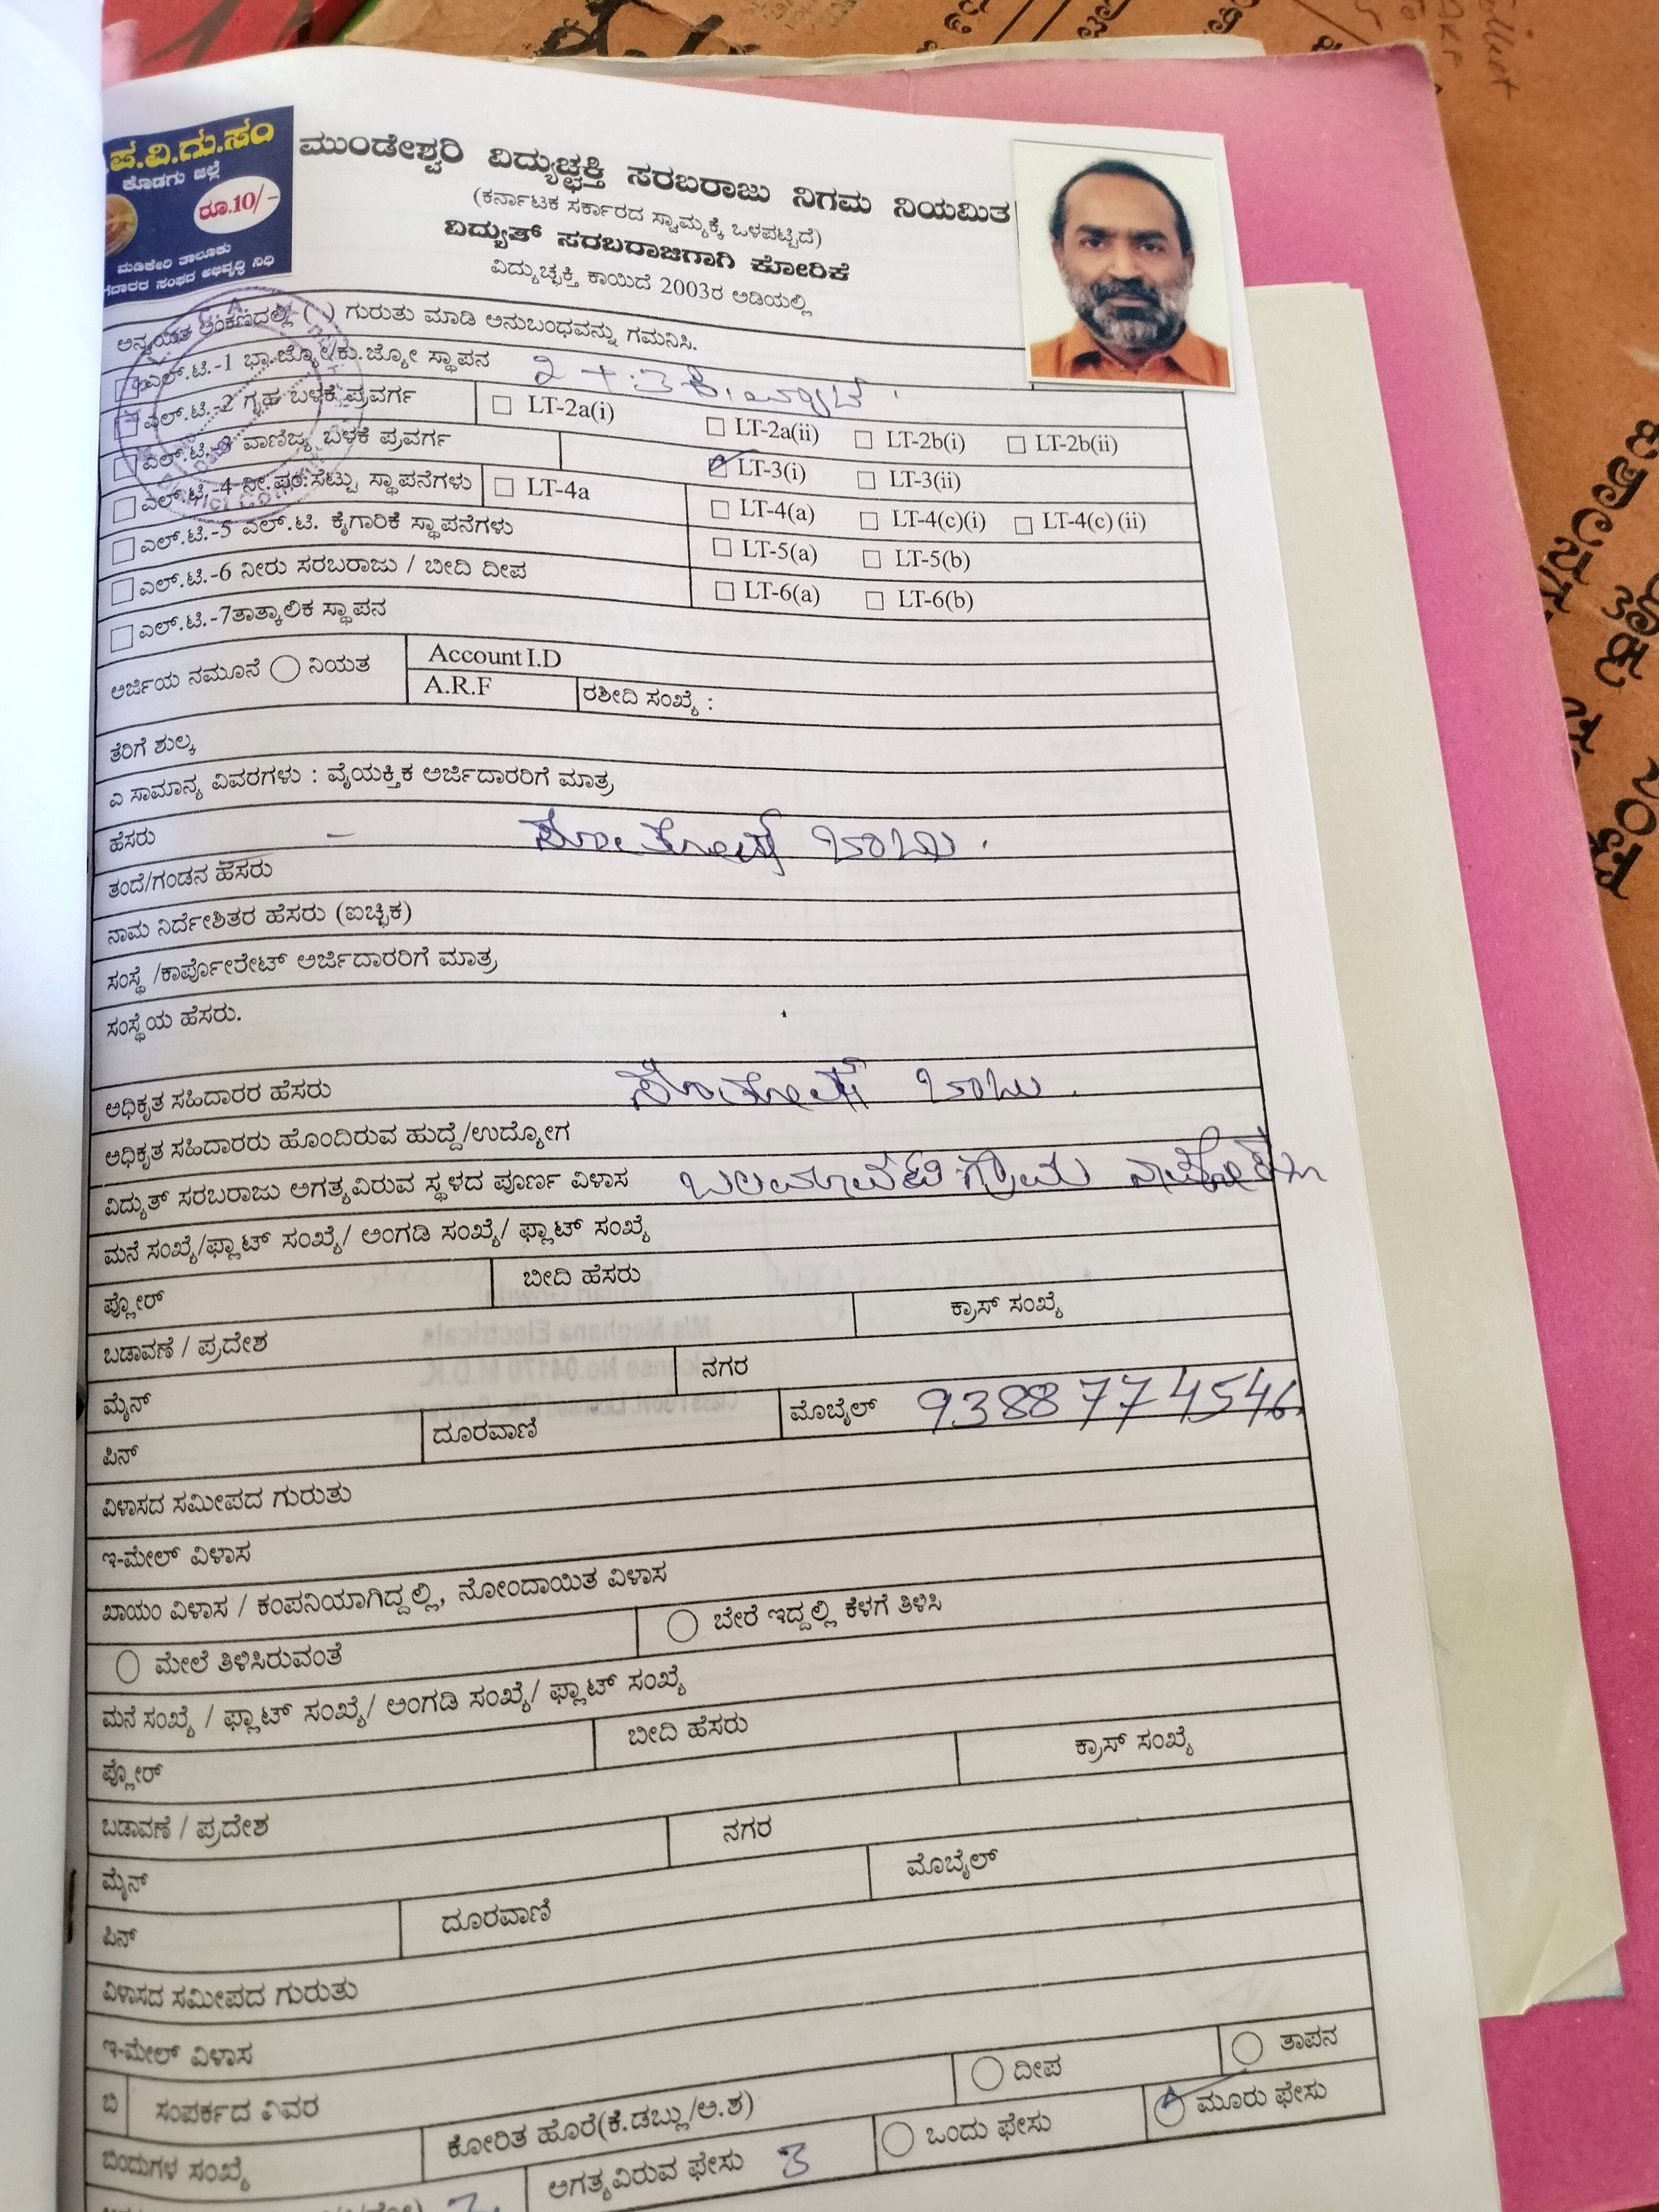 ಪ.ವಿ.ಗು.ಸಂ
ಕೊಡಗು ಜಿಲ್ಲೆ
ರೂ.10/-
ಮಡಿಕೇರಿ ತಾಲೂಕು
ಗೆದಾರರ ಸಂಘದ ಅಭಿವೃದ್ಧಿ ನಿಧಿ
ಮುಂಡೇಶ್ವರಿ ವಿದ್ಯುಚ್ಛಕ್ತಿ ಸರಬರಾಜು ನಿಗಮ ನಿಯಮಿತ
(ಕರ್ನಾಟಕ ಸರ್ಕಾರದ ಸ್ವಾಮ್ಯಕ್ಕೆ ಒಳಪಟ್ಟಿದೆ)
ವಿದ್ಯುತ್ ಸರಬರಾಜಿಗಾಗಿ ಕೋರಿಕೆ
ವಿದ್ಯುಚ್ಛಕ್ತಿ ಕಾಯಿದೆ 2003ರ ಅಡಿಯಲ್ಲಿ
ಅನ್ವಯಿತ ಅಂಕಣದಲ್ಲಿ ( ) ಗುರುತು ಮಾಡಿ ಅನುಬಂಧವನ್ನು ಗಮನಿಸಿ.
ಎಲ್.ಟಿ.-1 ಭಾ.ಜ್ಯೋ/ಕು.ಜ್ಯೋ ಸ್ಥಾಪನ 2 + 3
ಎಲ್.ಟಿ.-2 ಗೃಹ ಬಳಕೆ ಪ್ರವರ್ಗ LT-2a(i) LT-2a(ii) LT-2b(i) LT-2b(ii)
ಎಲ್.ಟಿ.-3 ವಾಣಿಜ್ಯ ಬಳಕೆ ಪ್ರವರ್ಗ LT-3(i) LT-3(ii)
ಎಲ್.ಟಿ.-4 ನೀ.ಪಂ.ಸೆಟ್ಟು ಸ್ಥಾಪನೆಗಳು LT-4a LT-4(a) LT-4(c)(i) LT-4(c)(ii)
ಎಲ್.ಟಿ.-5 ಎಲ್.ಟಿ. ಕೈಗಾರಿಕೆ ಸ್ಥಾಪನೆಗಳು LT-5(a) LT-5(b)
ಎಲ್.ಟಿ.-6 ನೀರು ಸರಬರಾಜು / ಬೀದಿ ದೀಪ LT-6(a) LT-6(b)
ಎಲ್.ಟಿ.-7ತಾತ್ಕಾಲಿಕ ಸ್ಥಾಪನ
ಅರ್ಜಿಯ ನಮೂನೆ ನಿಯತ Account I.D
A.R.F ರಶೀದಿ ಸಂಖ್ಯೆ :
ತೆರಿಗೆ ಶುಲ್ಕ
ಎ ಸಾಮಾನ್ಯ ವಿವರಗಳು : ವೈಯಕ್ತಿಕ ಅರ್ಜಿದಾರರಿಗೆ ಮಾತ್ರ
ಹೆಸರು - ಸಂತೋಷ್ ಬಾಬು.
ತಂದೆ/ಗಂಡನ ಹೆಸರು
ನಾಮ ನಿರ್ದೇಶಿತರ ಹೆಸರು (ಐಚ್ಛಿಕ)
ಸಂಸ್ಥೆ /ಕಾರ್ಪೋರೇಟ್ ಅರ್ಜಿದಾರರಿಗೆ ಮಾತ್ರ
ಸಂಸ್ಥೆಯ ಹೆಸರು.
ಅಧಿಕೃತ ಸಹಿದಾರರ ಹೆಸರು ಸಂತೋಷ್ ಬಾಬು.
ಅಧಿಕೃತ ಸಹಿದಾರರು ಹೊಂದಿರುವ ಹುದ್ದೆ/ಉದ್ಯೋಗ
ವಿದ್ಯುತ್ ಸರಬರಾಜು ಅಗತ್ಯವಿರುವ ಸ್ಥಳದ ಪೂರ್ಣ ವಿಳಾಸ ಬಲಮಾವಟಿ ಗ್ರಾಮ ನಾಪೋಕ್ಲು
ಮನೆ ಸಂಖ್ಯೆ/ಫ್ಲಾಟ್ ಸಂಖ್ಯೆ/ ಅಂಗಡಿ ಸಂಖ್ಯೆ/ ಫ್ಲಾಟ್ ಸಂಖ್ಯೆ
ಫ್ಲೋರ್ ಬೀದಿ ಹೆಸರು
ಬಡಾವಣೆ / ಪ್ರದೇಶ ಕ್ರಾಸ್ ಸಂಖ್ಯೆ
ಮೈನ್ ನಗರ
ಪಿನ್ ದೂರವಾಣಿ ಮೊಬೈಲ್ 9388774546
ವಿಳಾಸದ ಸಮೀಪದ ಗುರುತು
ಇ-ಮೇಲ್ ವಿಳಾಸ
ಖಾಯಂ ವಿಳಾಸ / ಕಂಪನಿಯಾಗಿದ್ದಲ್ಲಿ, ನೋಂದಾಯಿತ ವಿಳಾಸ
ಮೇಲೆ ತಿಳಿಸಿರುವಂತೆ ಬೇರೆ ಇದ್ದಲ್ಲಿ ಕೆಳಗೆ ತಿಳಿಸಿ
ಮನೆ ಸಂಖ್ಯೆ / ಫ್ಲಾಟ್ ಸಂಖ್ಯೆ/ ಅಂಗಡಿ ಸಂಖ್ಯೆ/ ಫ್ಲಾಟ್ ಸಂಖ್ಯೆ
ಫ್ಲೋರ್ ಬೀದಿ ಹೆಸರು
ಬಡಾವಣೆ / ಪ್ರದೇಶ ಕ್ರಾಸ್ ಸಂಖ್ಯೆ
ಮೈನ್ ನಗರ
ಪಿನ್ ದೂರವಾಣಿ ಮೊಬೈಲ್
ವಿಳಾಸದ ಸಮೀಪದ ಗುರುತು
ಇ-ಮೇಲ್ ವಿಳಾಸ
ಬಿ ಸಂಪರ್ಕದ ವಿವರ ದೀಪ ತಾಪನ
ಬಿಂದುಗಳ ಸಂಖ್ಯೆ ಕೋರಿತ ಹೊರೆ(ಕೆ.ಡಬ್ಲು/ಅ.ಶ) ಒಂದು ಫೇಸು ಮೂರು ಫೇಸು
ಅಗತ್ಯವಿರುವ ಫೇಸು 3